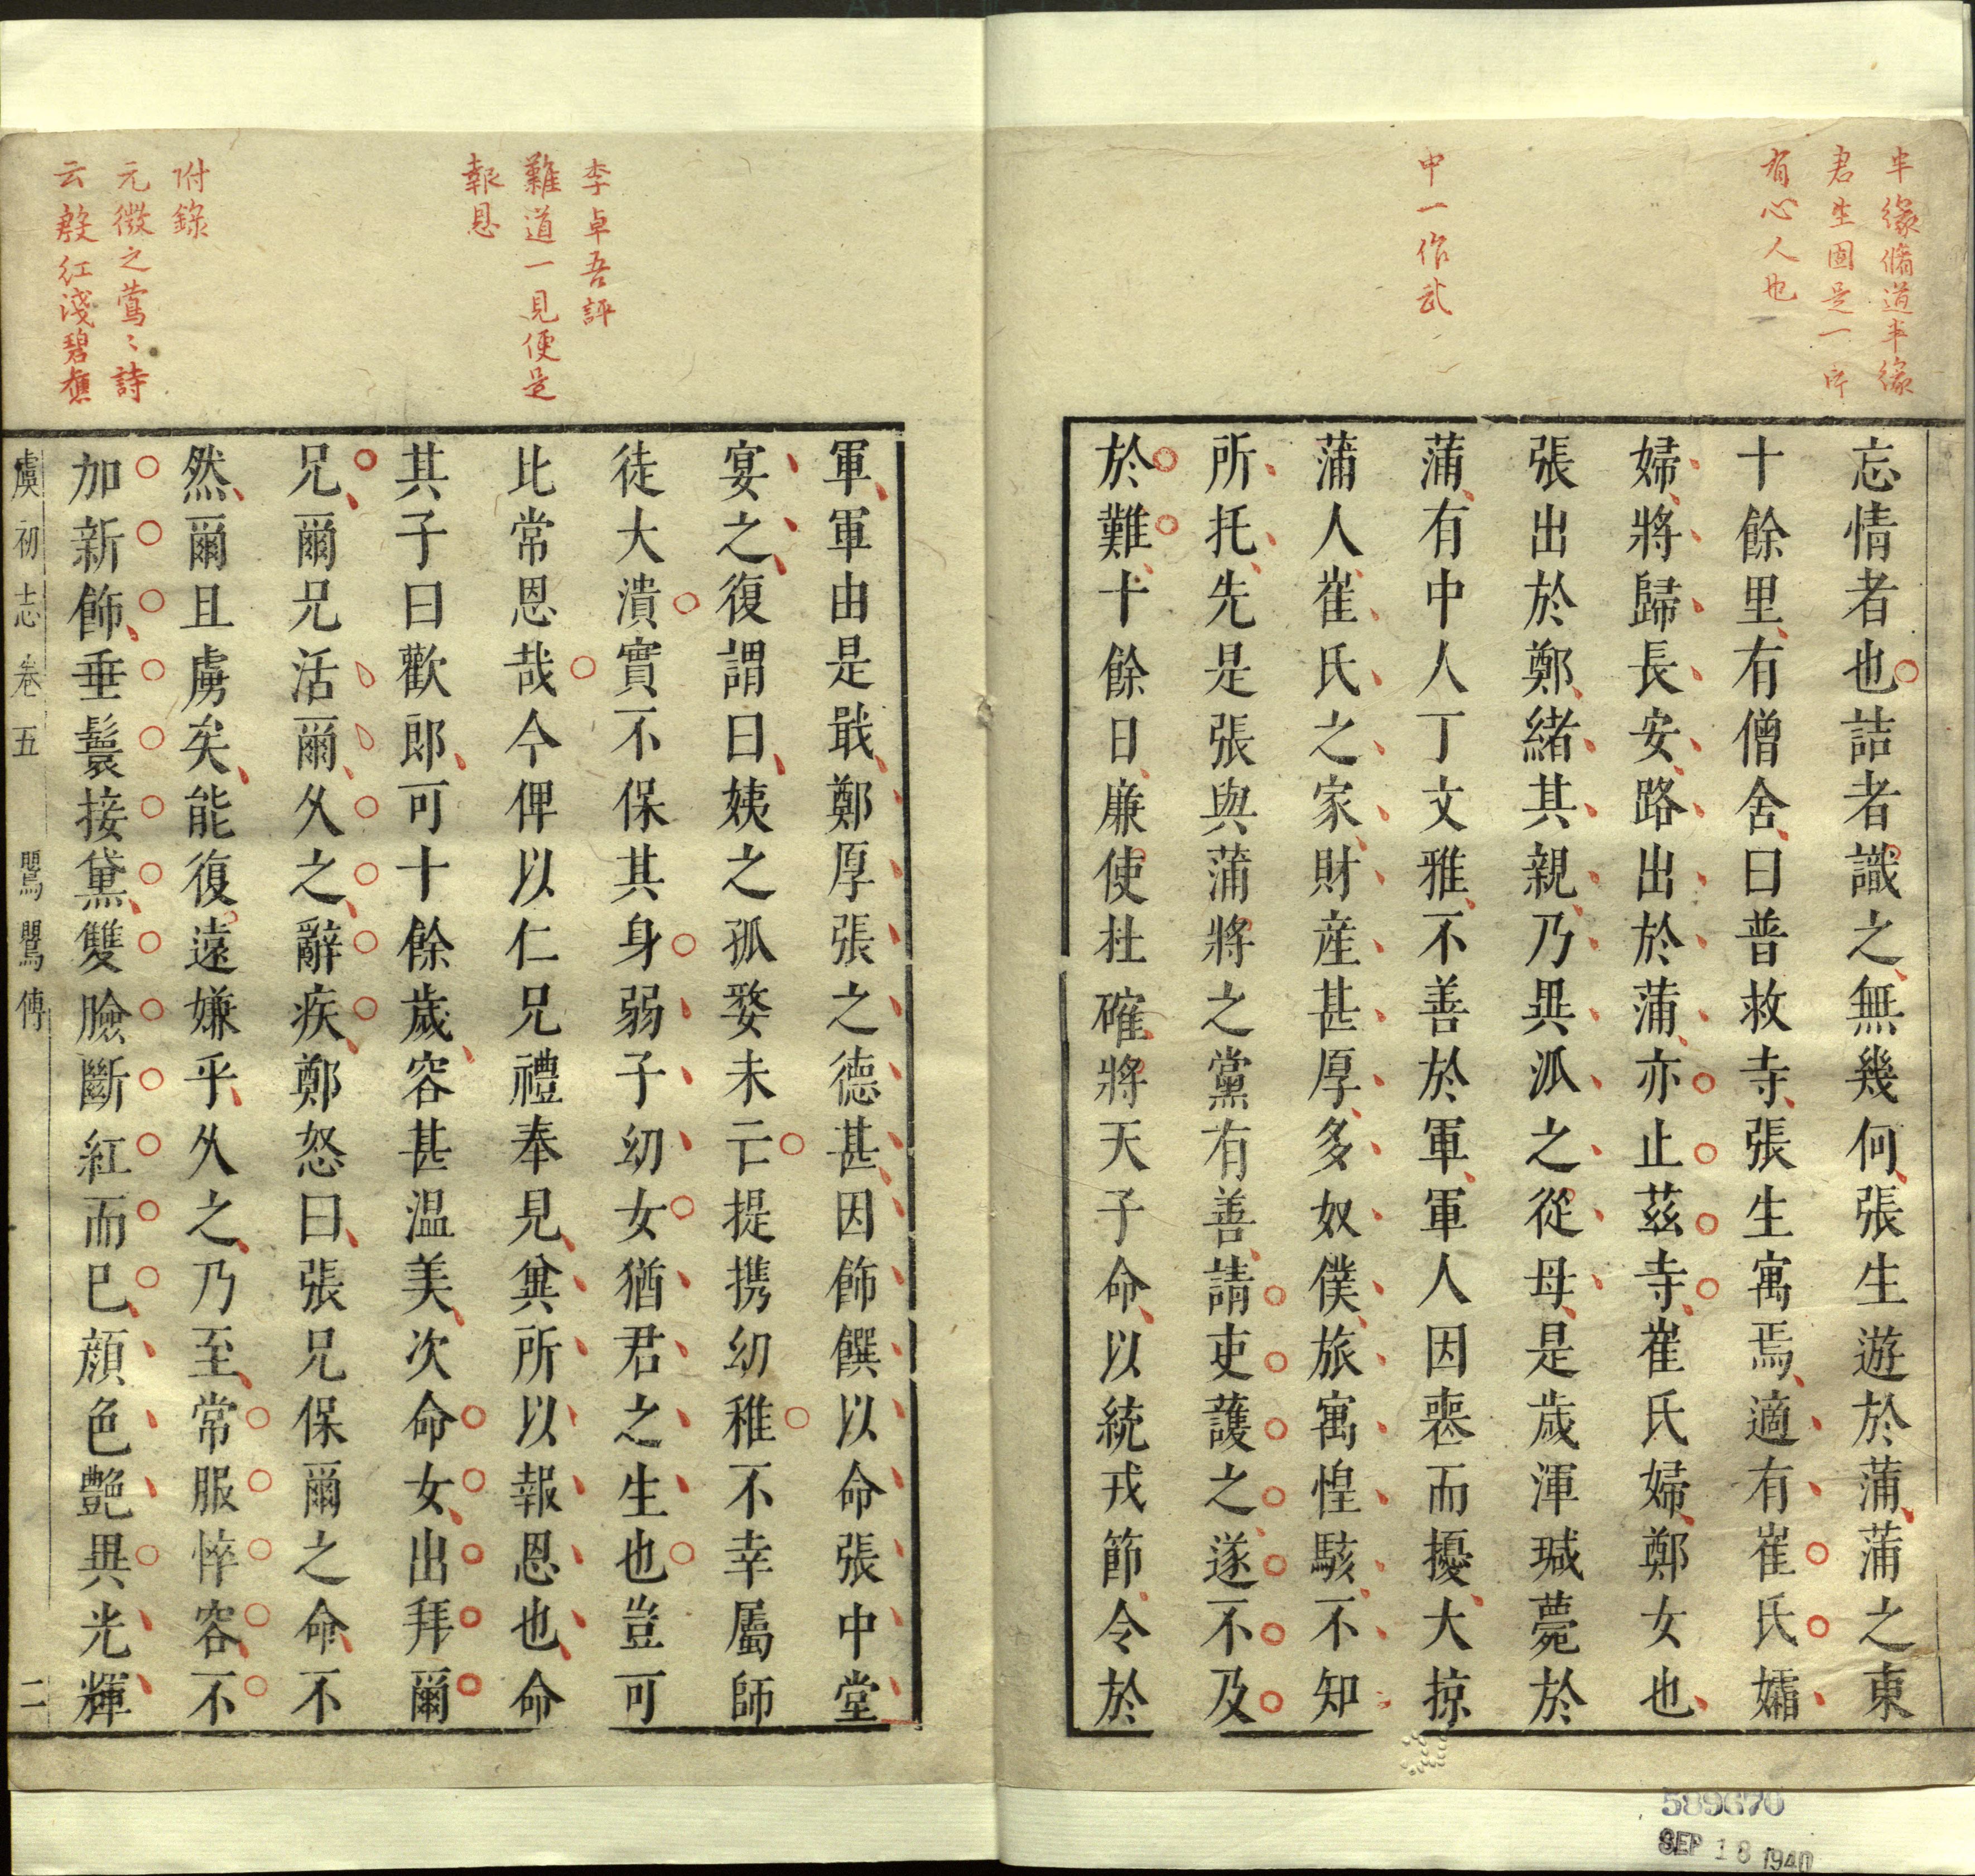 半緣脩道半緣
君生固是一片
有心人也
中一作武
忘情者也詰者識之無幾何張生遊於蒲蒲之東
十餘里有僧舍曰普救寺張生寓焉適有崔氏孀
婦將歸長安路出於蒲亦止茲寺崔氏婦鄭女也
張出於鄭緒其親乃異派之從母是歲渾瑊薨於
蒲有中人丁文雅不善於軍軍人因喪而擾大掠
蒲人崔氏之家財産甚厚多奴僕旅寓惶駭不知
所托先是張與蒲將之黨有善請吏護之遂不及
於難十餘日廉使杜確將天子命以統戎節令於
李卓吾評
難道一見便是
報恩
附錄
元微之鶯〻詩
云殷紅淺碧舊
軍軍由是戢鄭厚張之德甚因飾饌以命張中堂
宴之復謂曰姨之孤嫠未亡提携幼稚不幸屬師
徒大潰實不保其身弱子幼女猶君之生也豈可
比常恩哉今俾以仁兄禮奉見兾所以報恩也命
其子曰歡郎可十餘歲容甚温美次命女出拜爾
兄爾兄活爾久之辭疾鄭怒曰張兄保爾之命不
然爾且虜矣能復遠嫌乎久之乃至常服悴容不
加新飾垂鬟接黛雙臉斷紅而已顔色艶異光輝
虞初志 卷五 鶯鶯傳 二
589670
SEP 18 1940